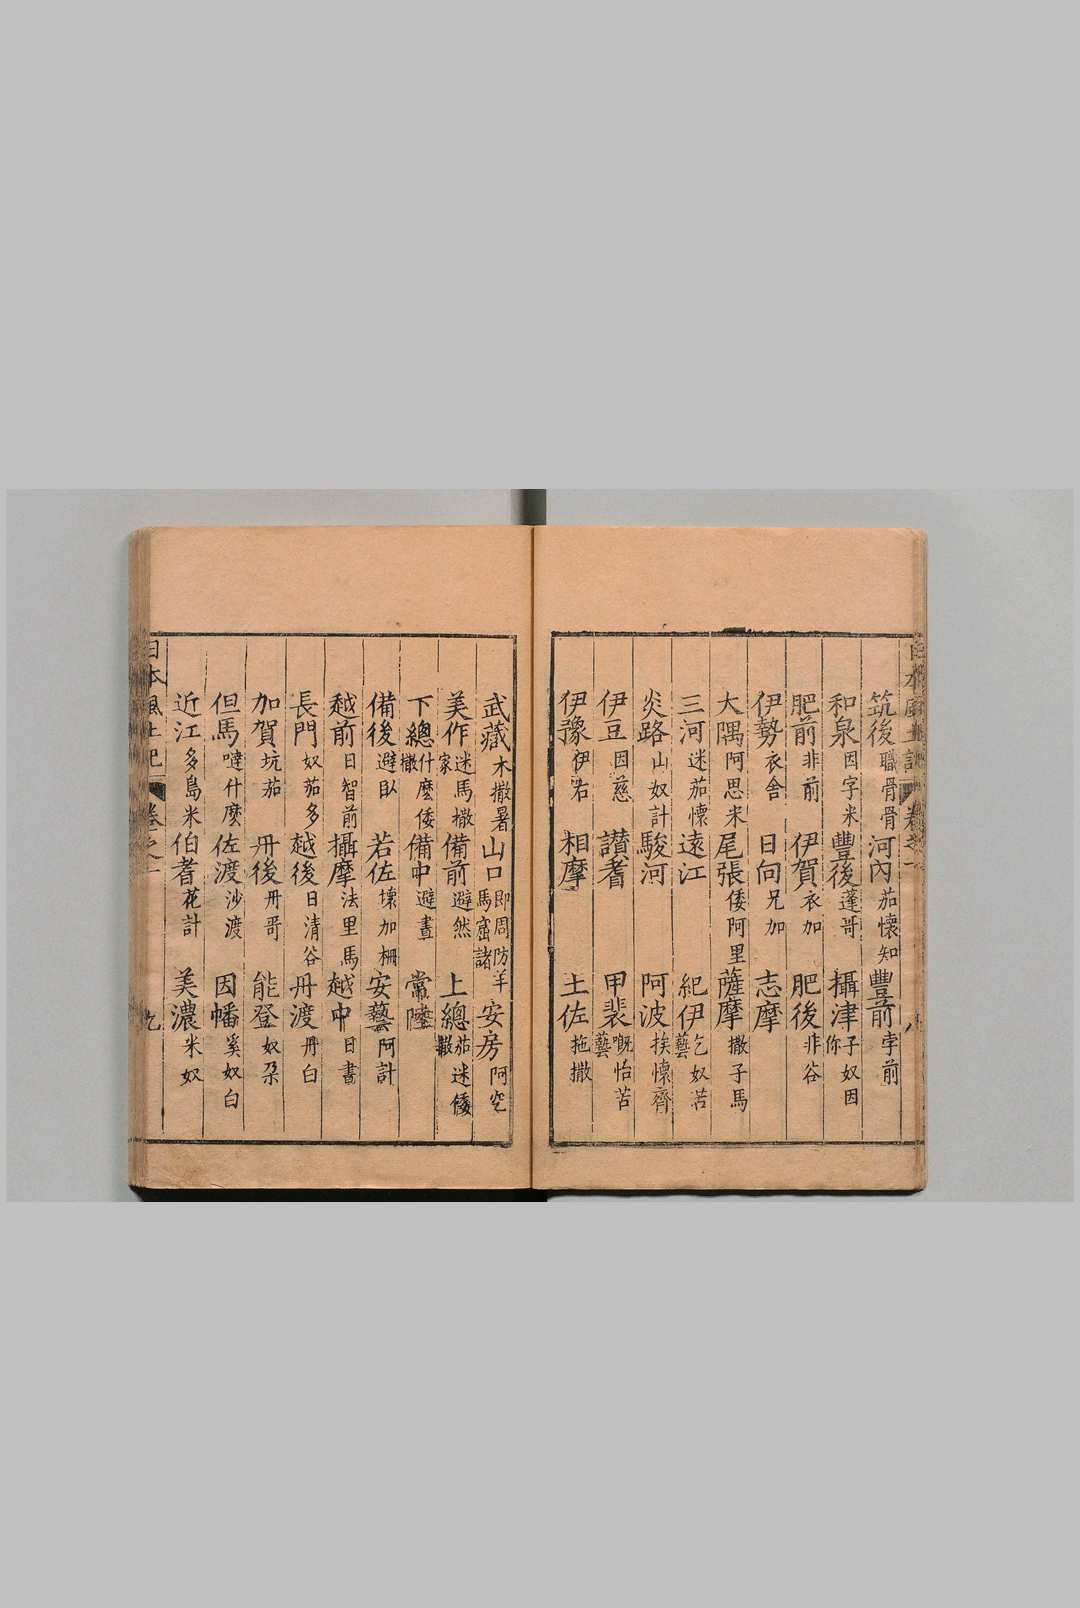 筑後職骨骨河內茄懷知豐前字前
和泉因字米豐後蓬哥攝津子奴因你
肥前非前伊賀衣加肥後非谷
伊勢衣舍日向兄加志摩
大隅阿思米尾張倭阿里薩摩撒子馬
三河迷茄懷遠江紀伊乞奴苦藝
炎路山奴計駿河阿波挨懷齊
伊豆因慈讃耆甲裴嘅怡苦藝
伊豫伊右相摩土佐拖撒
武藏木撒暑山口即周防羊馬窟諸安房阿空
美作迷馬撒家備前避然上總茄迷倭撒
下總什麼倭撒備中避晝常陸
備後避臥若佐壊加柵安藝阿計
越前日智前攝摩法里馬越中日晝
長門奴茄多越後日清谷丹渡丹白
加賀坑茄丹後丹哥能登奴朶
但馬噠什麽佐渡沙渡因幡奚奴白
近江多島米伯耆花計美濃米奴
日本風土記 卷之一